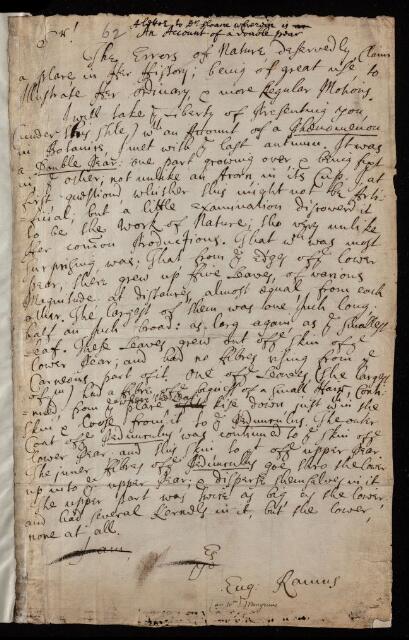 A letter to Dr Sloane wherein is
An Account of a double pear
Sr! 62
The Errors of Nature deservedly Claim
a place in Her History; being of great use to
Illustrate Her ordinary, & more Regular Motions.
I will take ye Liberty of presenting you
under this with an Account of a Phænomenon
in Botanics, I met with ye last autumn. It was
a Double Pear: one part growing over & being set
in ye other, not unlike an Acorn in its Cup. I at
first question'd whither this might not be Arti-
ficial; but a little Examination discover'd it
to be the Work of Nature; tho very unlike
Her common Productions. That wch was most
surprising was, That from ye edge of ye lower
Pear, there grew up five Leaves, of various
Magnitude, at Distances, almost equal from each
other. The largest of them was one Inch long,
half an Inch broad: as long again as ye smallest
leaf. These Leaves grew out of ye skin of ye
Lower Pear; and had no fibres rising from ye
Carneous part of it. One of ye Leaves (the largest
of 'em) had a fibre of ye bigness of a small Hair, Conti-
nued from ye place down just wthin the
skin & loose from it to ye Pedunculus. The outer
Coat of ye Pedunculus was continued to ye skin of ye
Lower Pear, and this skin to yt of ye upper Pear.
The inner fibres of ye Pedunculus goe thro the lower
up into ye upper Pear, & disperse themselves in it.
The upper part was twice as big as the lower,
and had several kernels in it, but the lower
none at all.
Eug. Ramus